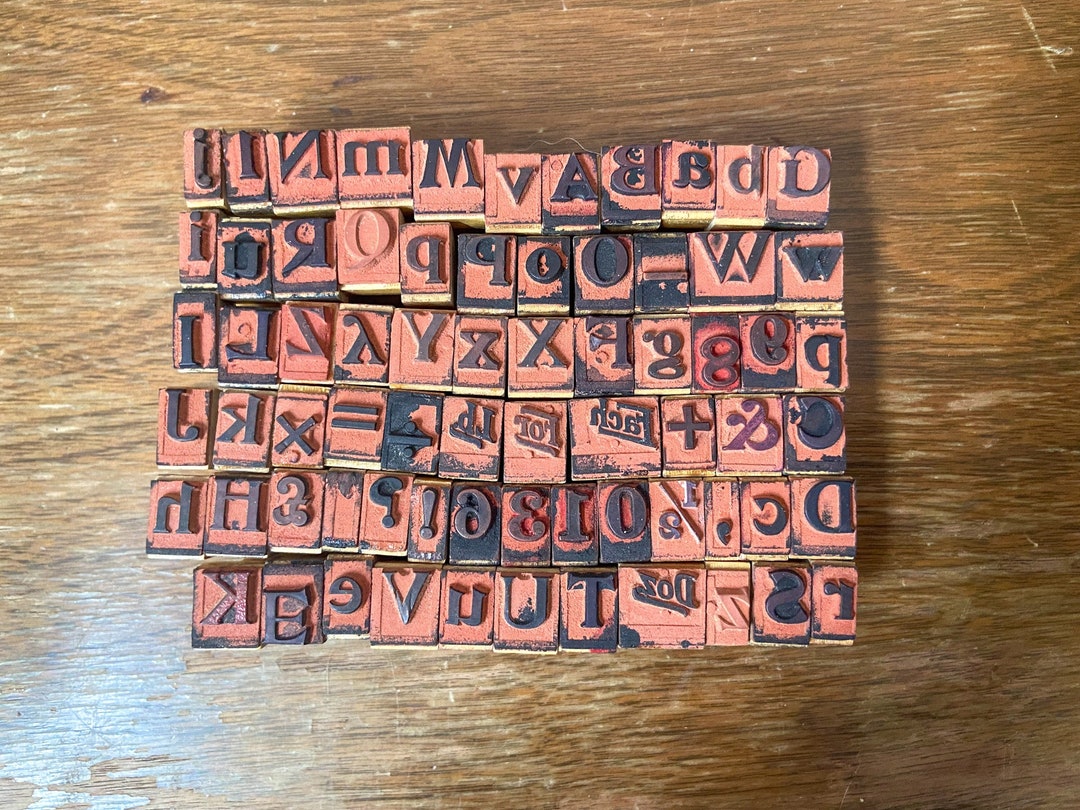 j I N m W v A B a b G
i n R Q p P o O - W w
l L Z y Y x X F g 8 9 q
J k × = ÷ lb For Each + & C
h H £ ? ! 6 3 1 0 ½ , c D
K E e V u U T Doz z s r